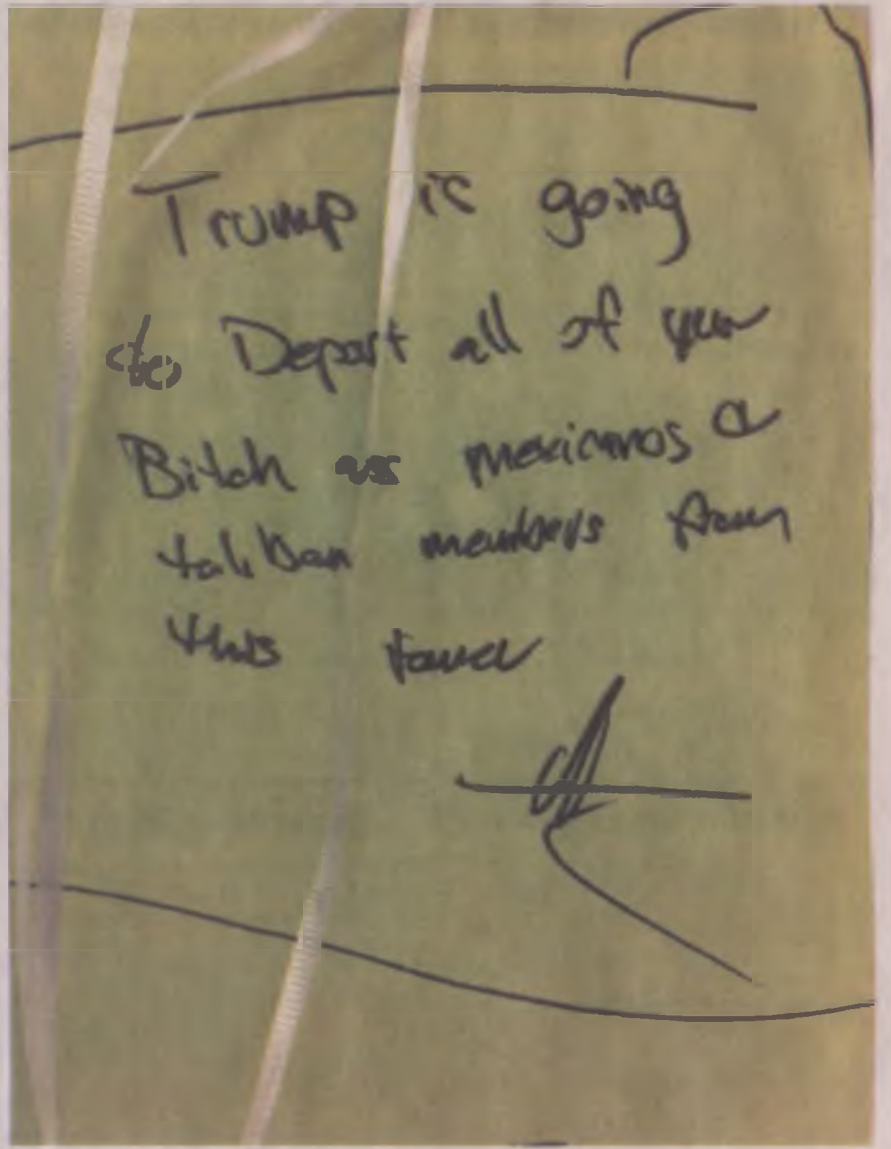 Trump is going
to Deport all of your
Bitch ass mexicanos &
taliban members from
this tower